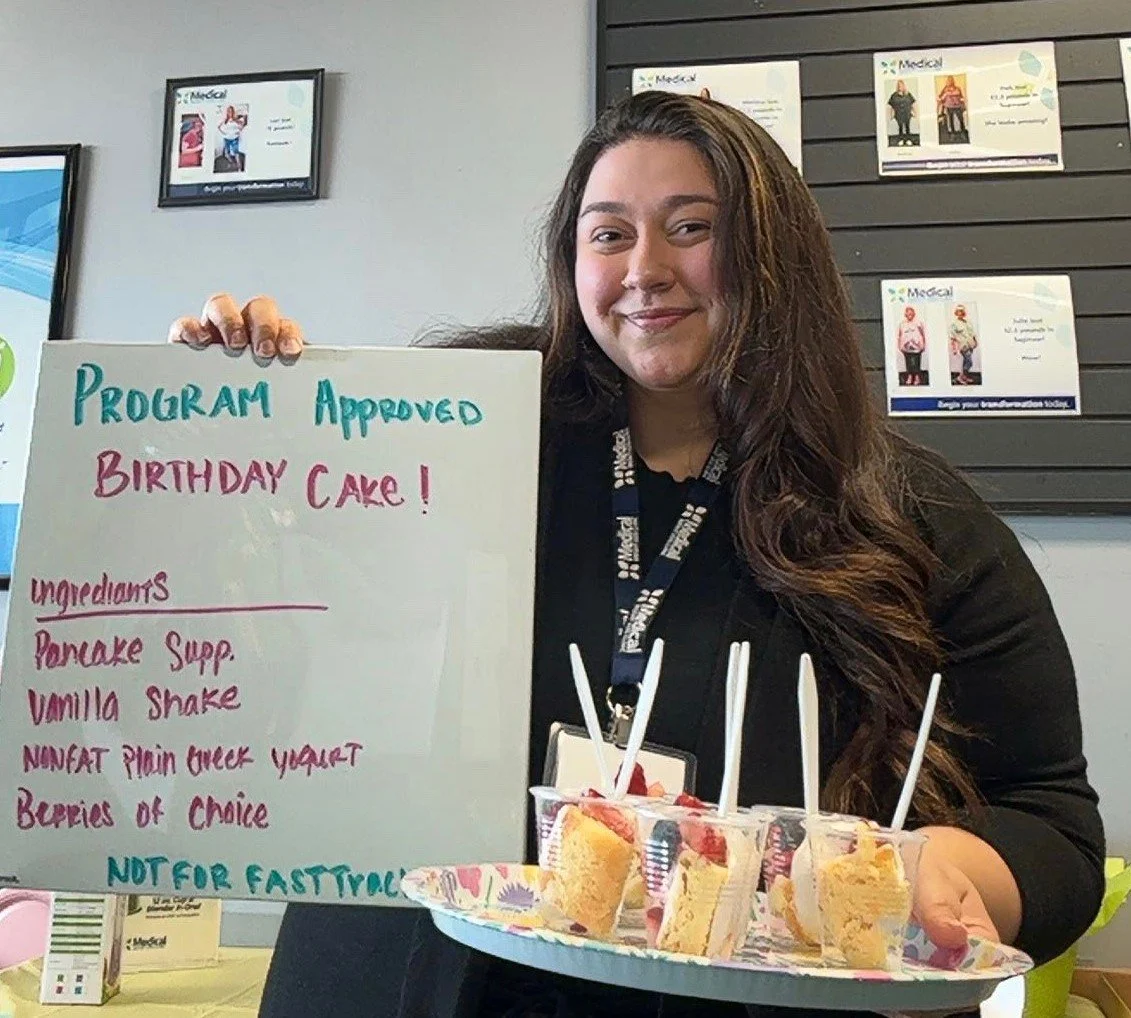 PROGRAM APPROVED
BIRTHDAY CAKE!
ingrediants
Pancake Supp.
Vanilla Shake
NONFAT Plain Greek yogurt
Berries of Choice
NOT FOR FASTTrac
Medical
Begin your transformation today.
Medical
Medical
Begin your transformation today.
Medical
Julie lost
Begin your transformation today.
Medical
Medical
Medical
Medical
Medical